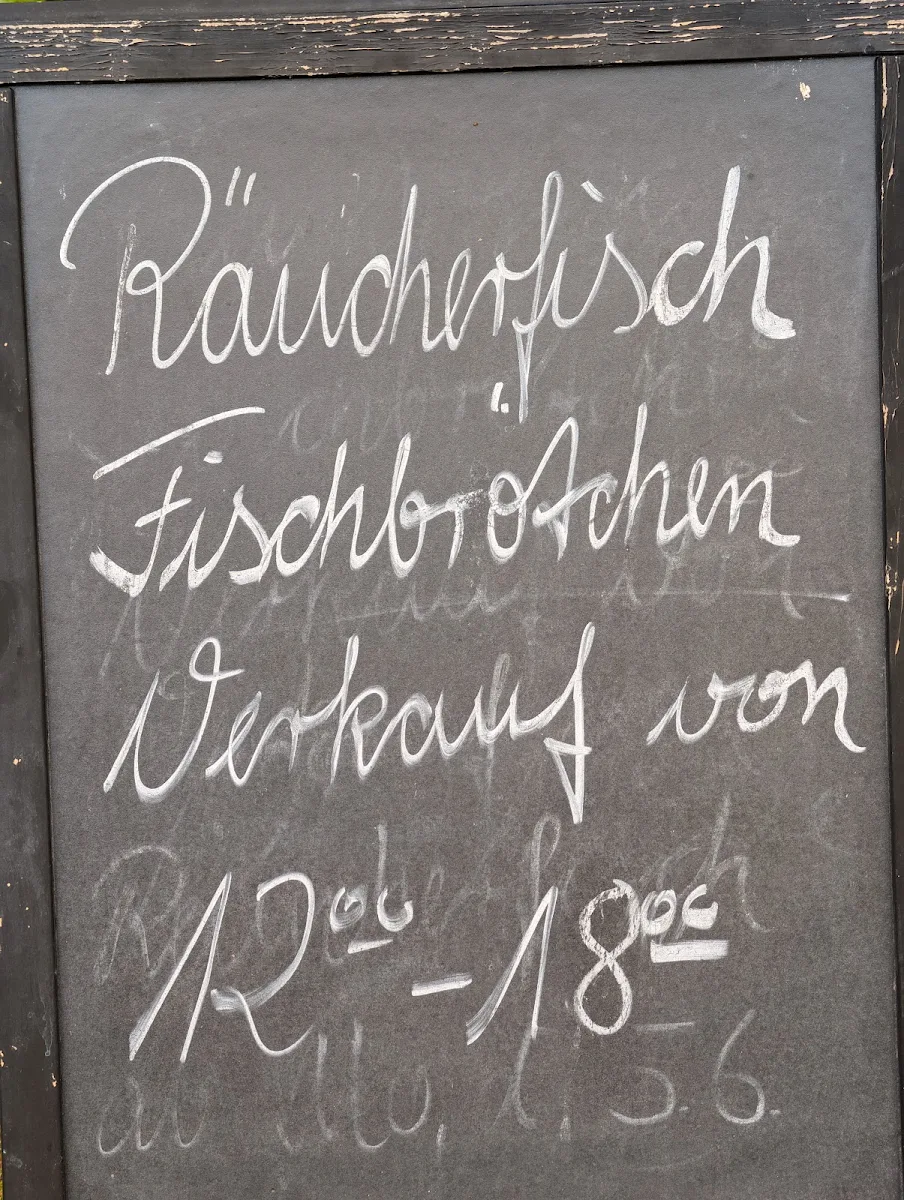 Räucherfisch
Fischbrötchen
Verkauf von
12⁰⁰ - 18⁰⁰